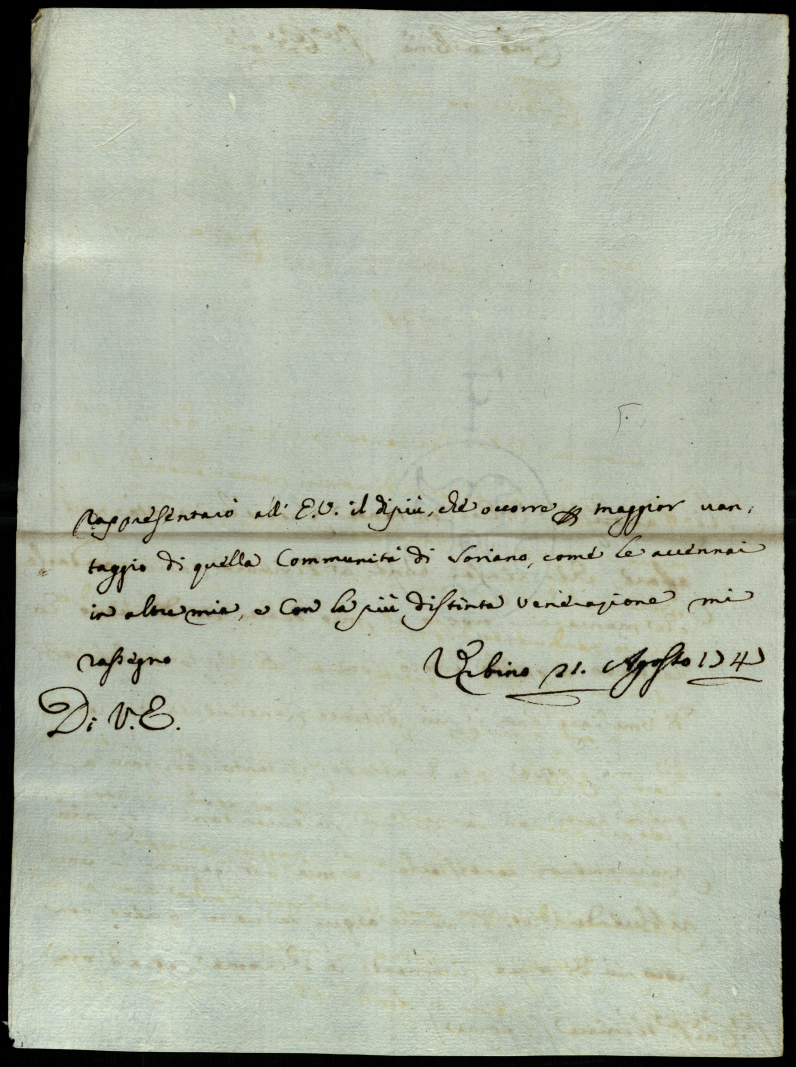 rappresentarò all' E.V. il dipiù, che occorre maggior van,
taggio di quella Communità di Soriano, come le accennai
in altre mia, e Con la più distinta Venerazione mi
rassegno Urbino 21. Agosto 1747
Di V.E.